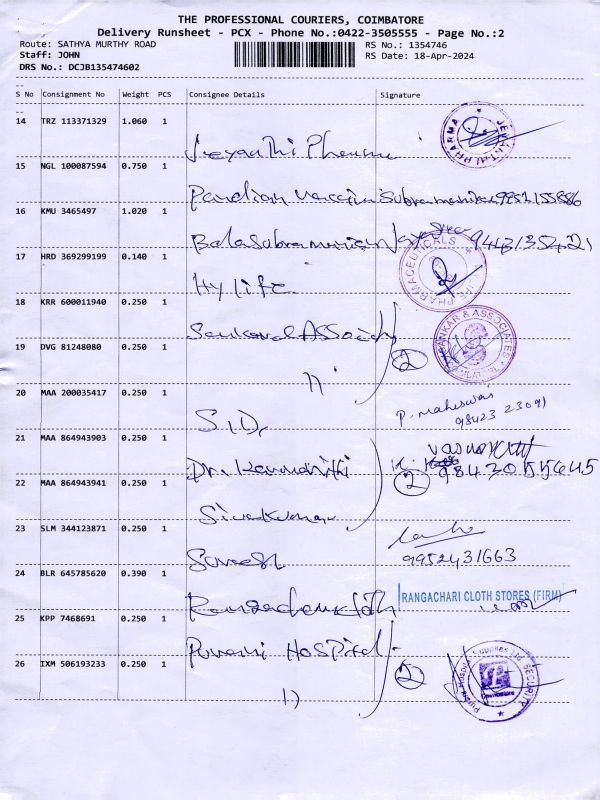 THE PROFESSIONAL COURIERS, COIMBATORE
Delivery Runsheet - PCX - Phone No.:0422-3505555 - Page No.:2
Route: SATHYA MURTHY ROAD
RS No.: 1354746
Staff: JOHN
RS Date: 18-Apr-2024
DRS No.: DCJB135474602
S No Consignment No Weight PCS Consignee Details Signature
14 TRZ 113371329 1.060 1
JEYANTHI PHARMA
Jeyanthi Pharma
15 NGL 100087594 0.750 1
Pandian
16 KMU 3465497 1.020 1
Balasubramanian
17 HRD 369299199 0.140 1
PHARMACEUTICALS
Hy life
18 KRR 600011940 0.250 1
SANKAR & ASSOCIATES
Sankar & Associates
19 DVG 81248080 0.250 1
2
11
20 MAA 200035417 0.250 1
P. Maheswari
98423 23091
S.D.
21 MAA 864943903 0.250 1
Dr.
22 MAA 864943941 0.250 1
2
Sivakumar
23 SLM 344123871 0.250 1
9952431663
Suresh
24 BLR 645785620 0.390 1
RANGACHARI CLOTH STORES (FIRM)
Rangachari Cloth
25 KPP 7468691 0.250 1
Hospital
26 IXM 506193233 0.250 1
2
11